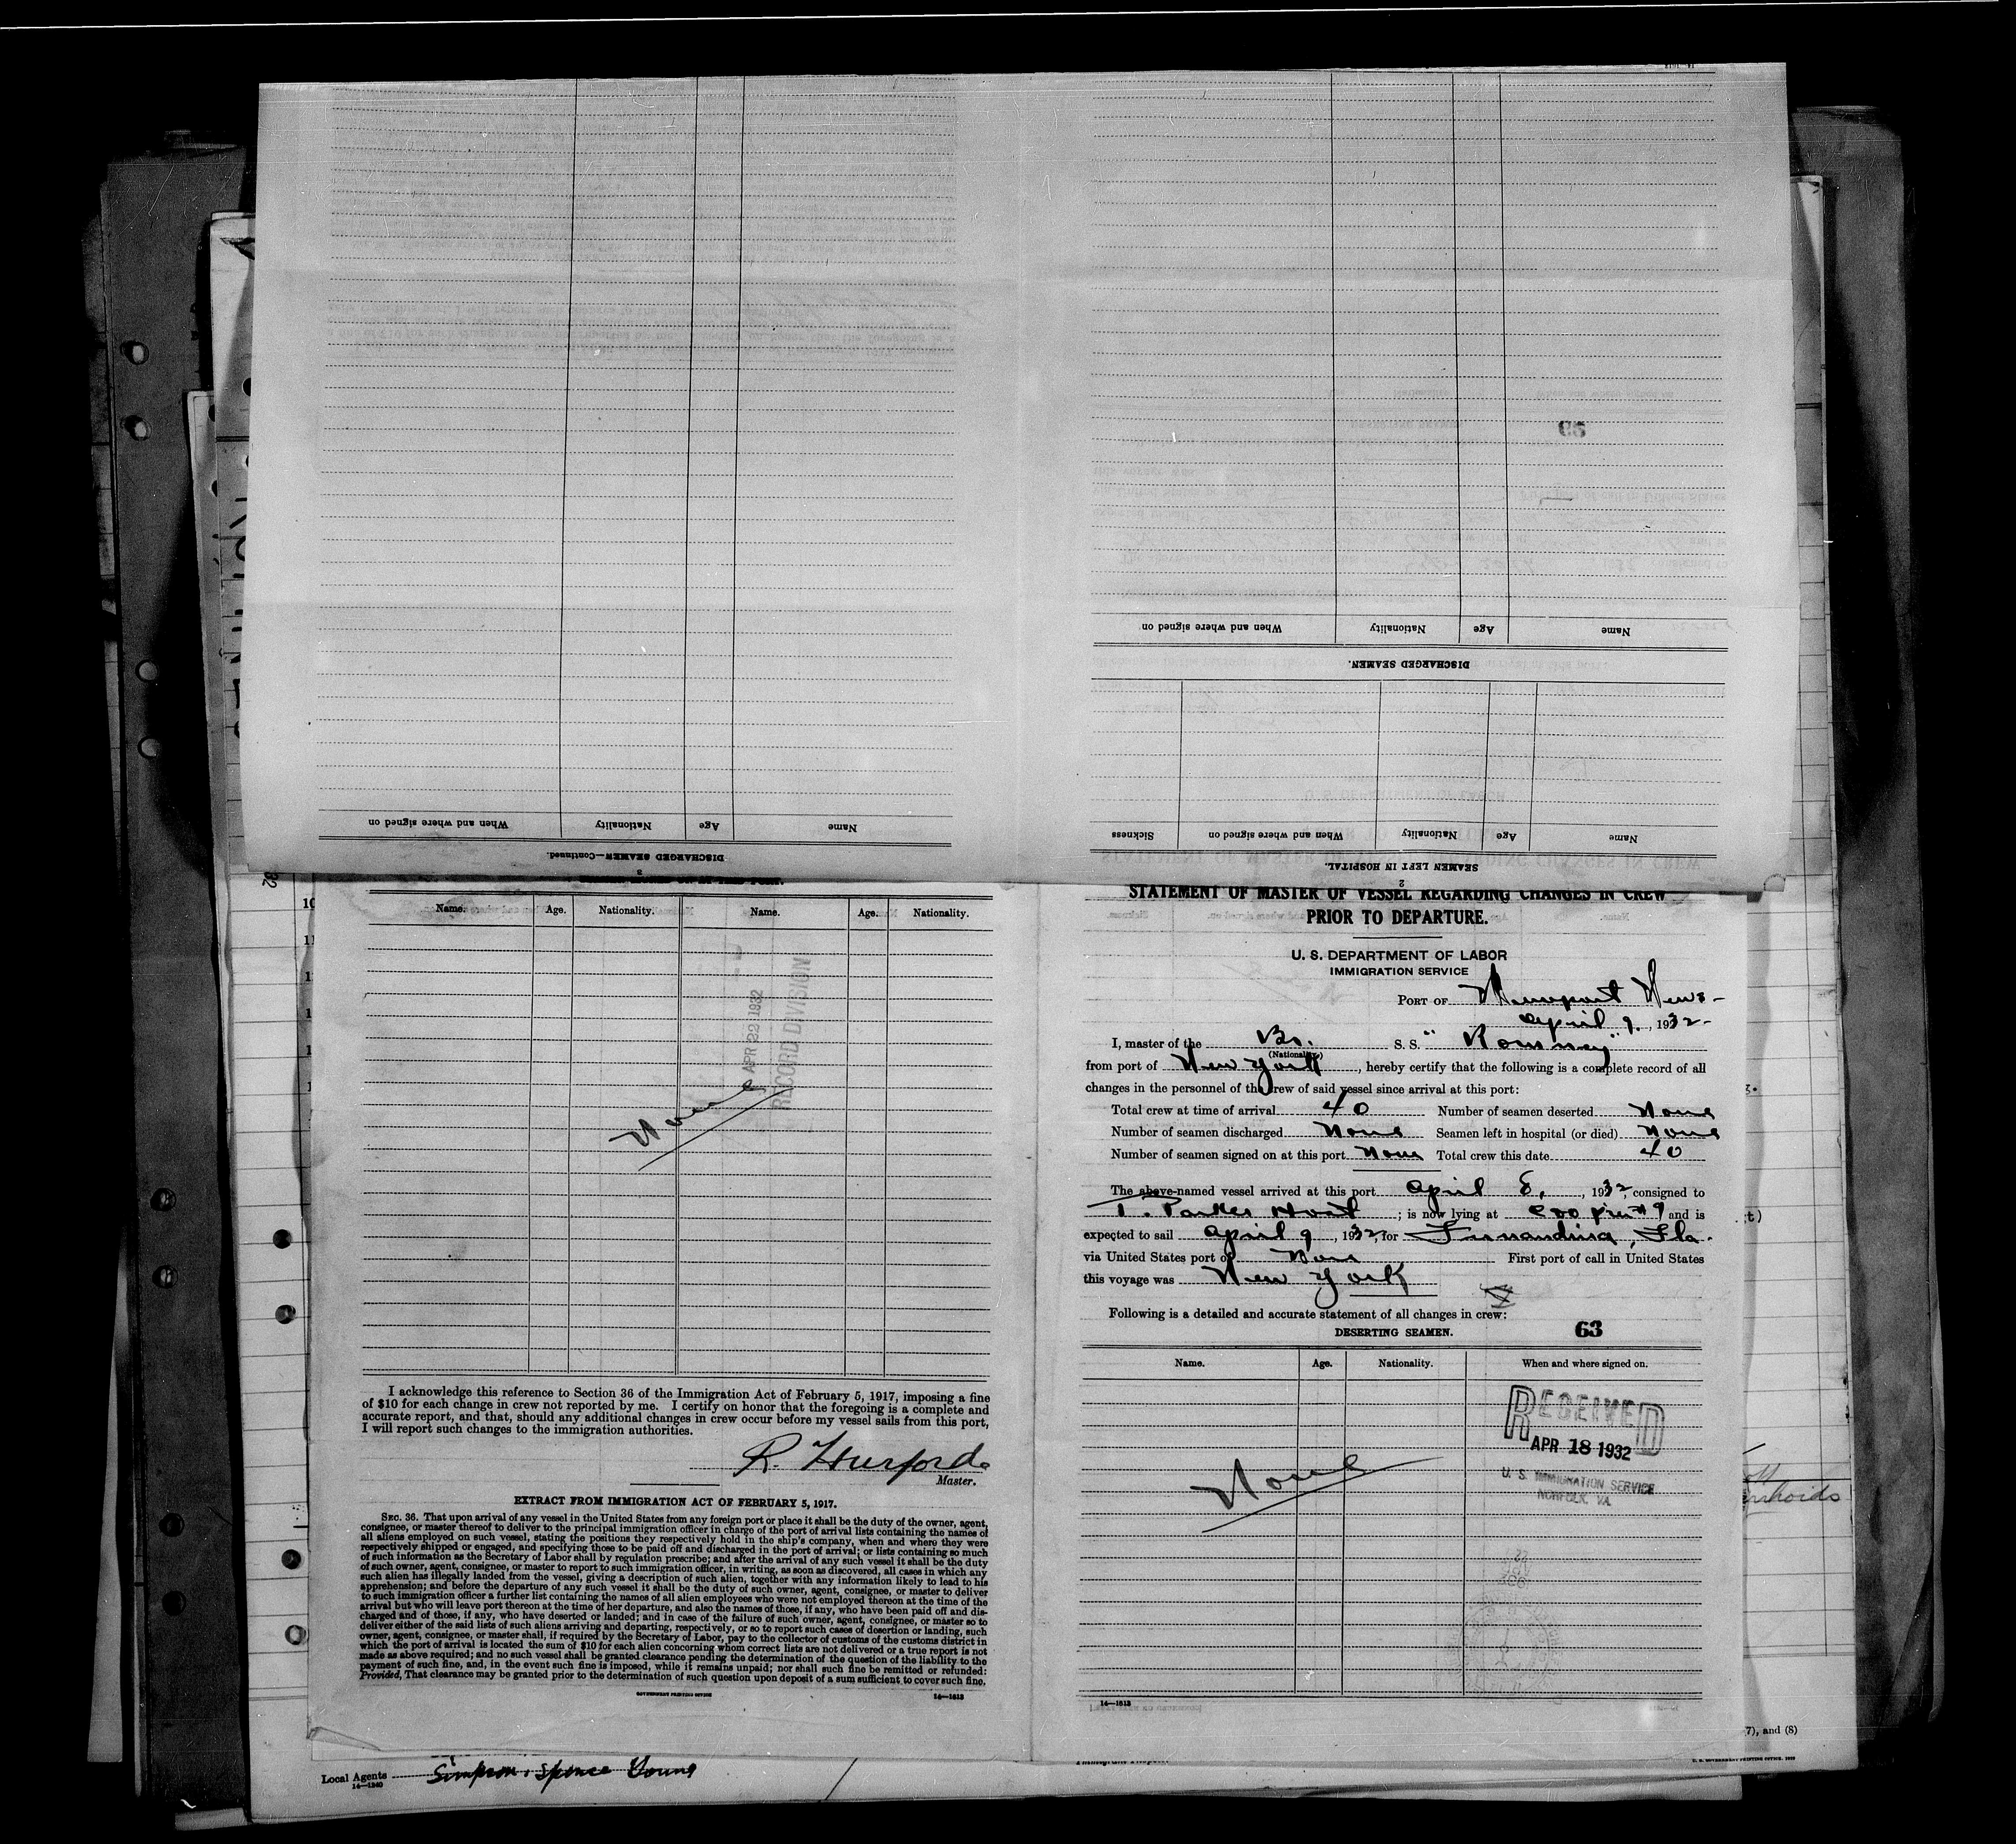 Name
Age
Nationality
When and where signed on
DISCHARGED SEAMEN—Continued.
3
DISCHARGED SEAMEN.
Name
Age
Nationality
When and where signed on
SEAMEN LEFT IN HOSPITAL.
2
Name
Age
Nationality
When and where signed on
Sickness
Name. Age. Nationality. Name. Age. Nationality.
APR 22 1932
RECORD DIVISION
None
I acknowledge this reference to Section 36 of the Immigration Act of February 5, 1917, imposing a fine
of $10 for each change in crew not reported by me. I certify on honor that the foregoing is a complete and
accurate report, and that, should any additional changes in crew occur before my vessel sails from this port,
I will report such changes to the immigration authorities.
R. Hurford.
Master.
EXTRACT FROM IMMIGRATION ACT OF FEBRUARY 5, 1917.
SEC. 36. That upon arrival of any vessel in the United States from any foreign port or place it shall be the duty of the owner, agent,
consignee, or master thereof to deliver to the principal immigration officer in charge of the port of arrival lists containing the names of
all aliens employed on such vessel, stating the positions they respectively hold in the ship's company, when and where they were
respectively shipped or engaged, and specifying those to be paid off and discharged in the port of arrival; or lists containing so much
of such information as the Secretary of Labor shall by regulation prescribe; and after the arrival of any such vessel it shall be the duty
of such owner, agent, consignee, or master to report to such immigration officer, in writing, as soon as discovered, all cases in which any
such alien has illegally landed from the vessel, giving a description of such alien, together with any information likely to lead to his
apprehension; and before the departure of any such vessel it shall be the duty of such owner, agent, consignee, or master to deliver
to such immigration officer a further list containing the names of all alien employees who were not employed thereon at the time of the
arrival but who will leave port thereon at the time of her departure, and also the names of those, if any, who have been paid off and dis-
charged and of those, if any, who have deserted or landed; and in case of the failure of such owner, agent, consignee, or master so to
deliver either of the said lists of such aliens arriving and departing, respectively, or so to report such cases of desertion or landing, such
owner, agent, consignee, or master shall, if required by the Secretary of Labor, pay to the collector of customs of the customs district in
which the port of arrival is located the sum of $10 for each alien concerning whom correct lists are not delivered or a true report is not
made as above required; and no such vessel shall be granted clearance pending the determination of the question of the liability to the
payment of such fine, and, in the event such fine is imposed, while it remains unpaid; nor shall such fine be remitted or refunded:
Provided, That clearance may be granted prior to the determination of such question upon deposit of a sum sufficient to cover such fine.
GOVERNMENT PRINTING OFFICE
14—1613
STATEMENT OF MASTER OF VESSEL REGARDING CHANGES IN CREW
PRIOR TO DEPARTURE.
U. S. DEPARTMENT OF LABOR
IMMIGRATION SERVICE
PORT OF Newport News-
April 9, 1932-
I, master of the Br. S. S. "Romney"
(Nationality)
from port of New York, hereby certify that the following is a complete record of all
changes in the personnel of the crew of said vessel since arrival at this port:
Total crew at time of arrival 40 Number of seamen deserted None
Number of seamen discharged None Seamen left in hospital (or died) None
Number of seamen signed on at this port None Total crew this date 40
The above-named vessel arrived at this port April 8, 1932, consigned to
T. Parker Host; is now lying at C&O Pier #9 and is
expected to sail April 9, 1932, for Fernandina, Fla.
via United States port of None First port of call in United States
this voyage was New York
Following is a detailed and accurate statement of all changes in crew:
DESERTING SEAMEN.
63
Name. Age. Nationality. When and where signed on.
RECEIVED
APR 18 1932
U. S. IMMIGRATION SERVICE
NORFOLK, VA.
None
14—1613
7), and (8)
Local Agents Simpson, Spence Young
14—1240